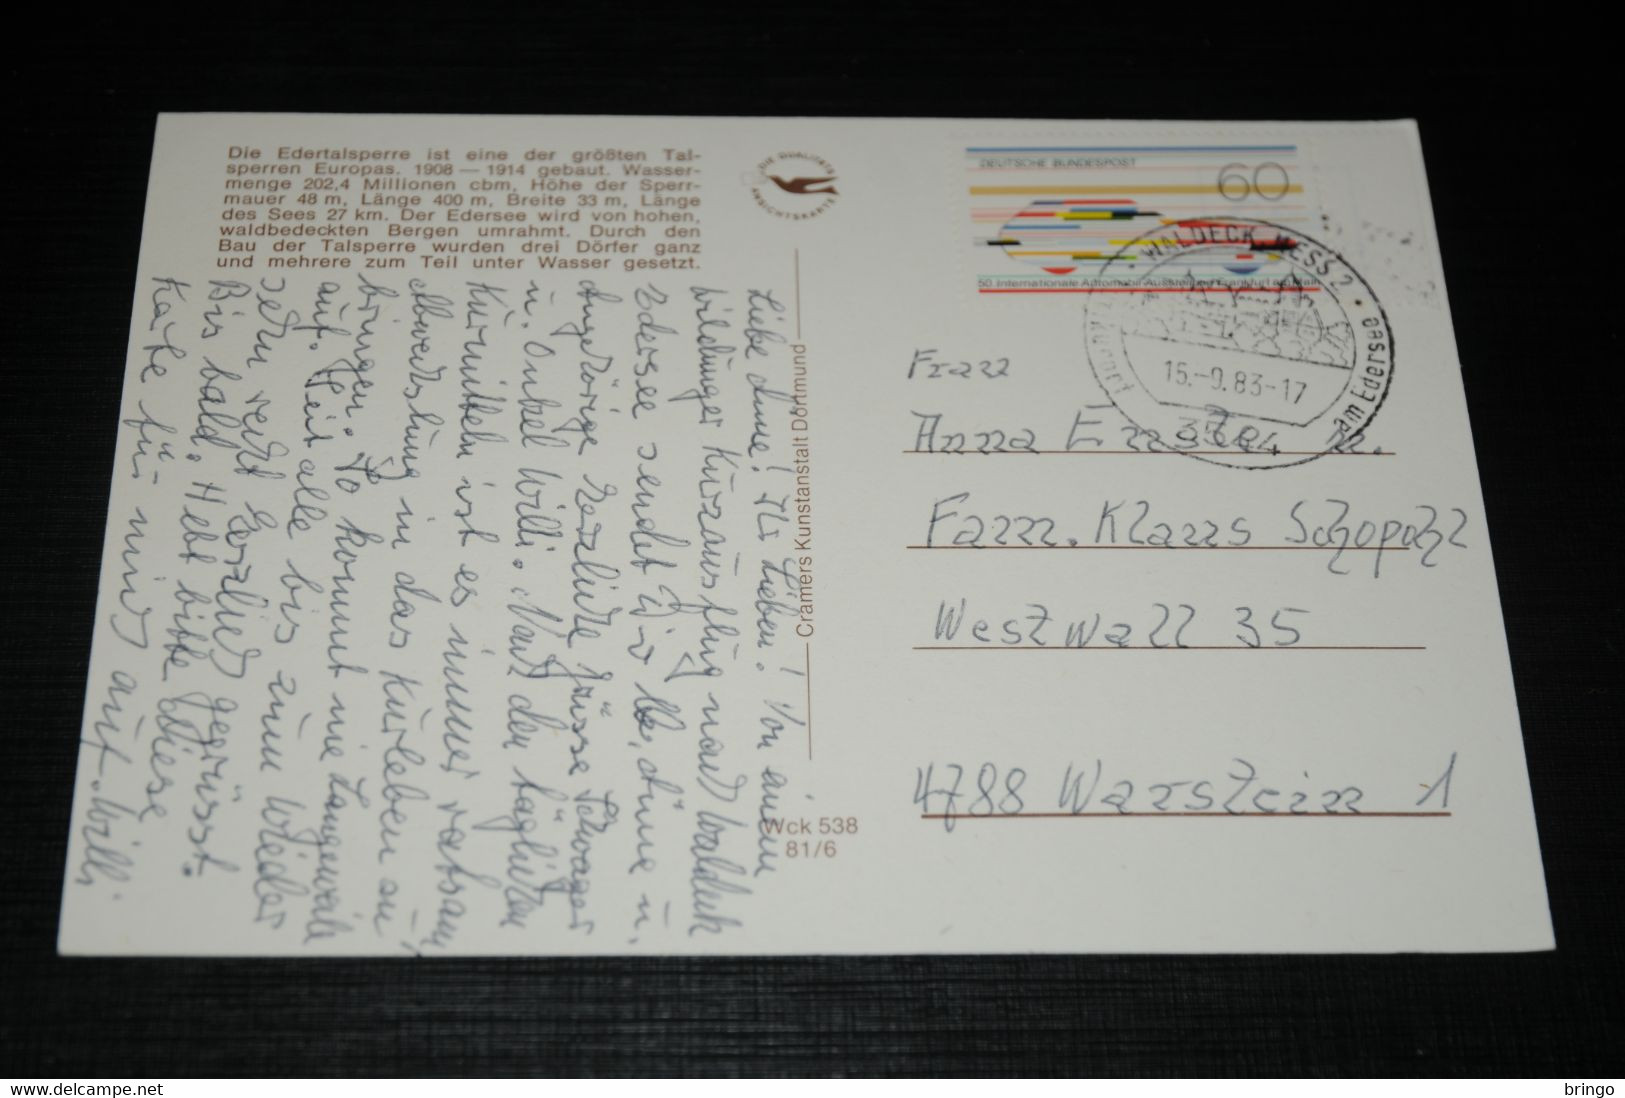 Die Edertalsperre ist eine der größten Tal-
sperren Europas. 1908 — 1914 gebaut. Wasser-
menge 202,4 Millionen cbm, Höhe der Sperr-
mauer 48 m, Länge 400 m, Breite 33 m, Länge
des Sees 27 km. Der Edersee wird von hohen,
waldbedeckten Bergen umrahmt. Durch den
Bau der Talsperre wurden drei Dörfer ganz
und mehrere zum Teil unter Wasser gesetzt.
DIE QUALITÄTS
ANSICHTSKARTE
Cramers Kunstanstalt Dortmund
Wck 538
81/6
DEUTSCHE BUNDESPOST
60
50. Internationale Automobil-Ausstellung Frankfurt am Main
WALDECK, HESS 2
am Edersee
15.-9.83-17
Liebe Änne! Ihr Lieben! Von einem
Wildunger Kurzausflug nach Waldeck
Edersee sendet Dir, Änne u.
Angehörige herzliche Grüsse Schwager
u. Onkel Willi. Nach den täglichen
Kurmitteln ist es immer ratsam,
Abwechslung in das Kurleben zu
bringen. So kommt nie Langeweile
auf. Seit alle bis zum Wieder
sehn recht herzlich gegrüsst.
Bis bald. Hebt bitte diese
Karte für mich auf. Willi.
Frau
Anna
Fam. Klaus Schopohl
Westwall 35
4788 Warstein 1